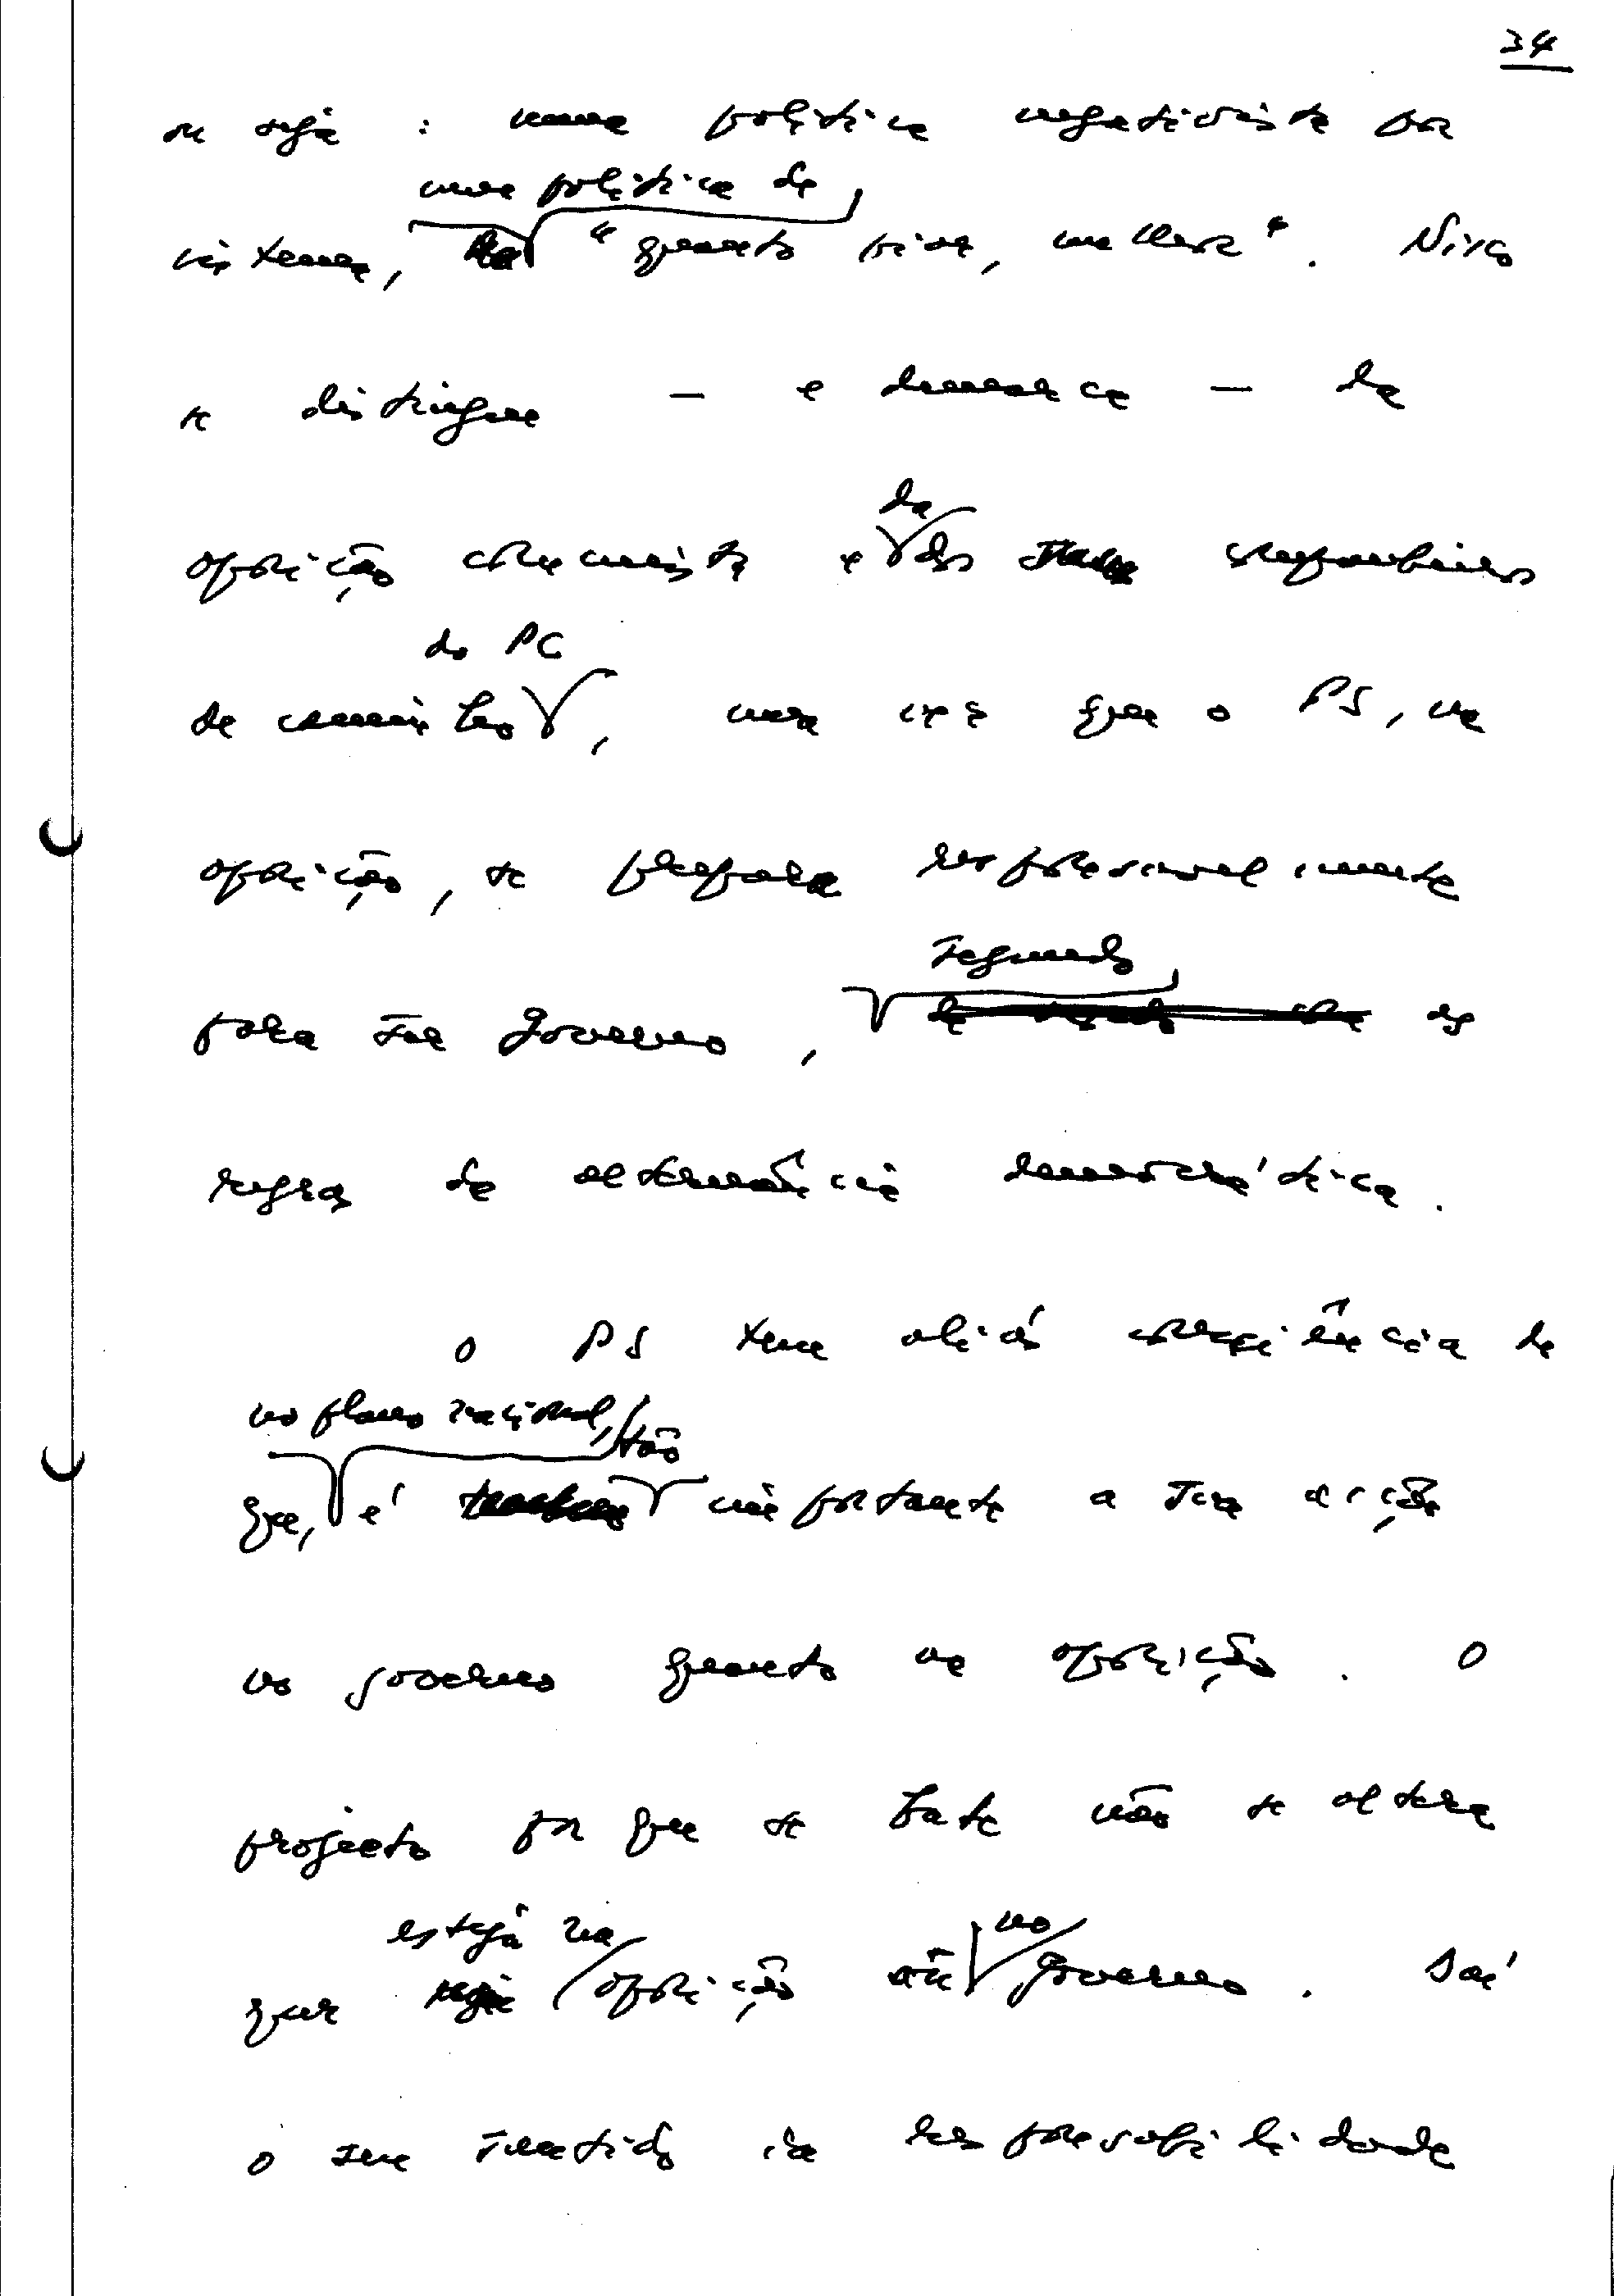 34
ou seja : uma política negativista por
uma política de
sistema, "quanto pior, melhor". Nisso
se distingue — e demarca — da
da
oposição comunista e dos
do PC
de comunistas, uma vez que o PS, na
oposição, se prepara responsavelmente
segundo
para ser Governo, da
regra da alternância democrática.
O PS tem aliás consciência de
no plano nacional, tão
que, é importante a sua acção
no governo quanto na oposição. O
projecto por que se bate não se altera
esteja na no
quer oposição ou Governo. Daí
o seu sentido da responsabilidade